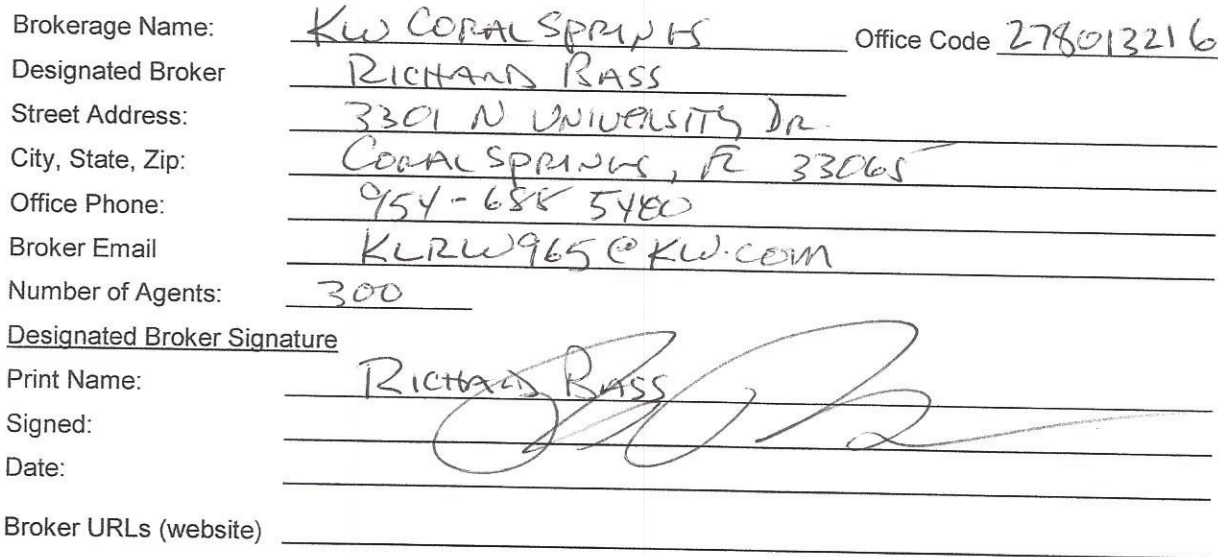 Brokerage Name: KW CORAL SPRINGS Office Code 278013216
Designated Broker RICHARD BASS
Street Address: 3301 N UNIVERSITY DR.
City, State, Zip: CORAL SPRINGS, FL 33065
Office Phone: 954-688 5400
Broker Email KLRW965@KW.COM
Number of Agents: 300
Designated Broker Signature
Print Name: RICHARD BASS
Signed:
Date:
Broker URLs (website)